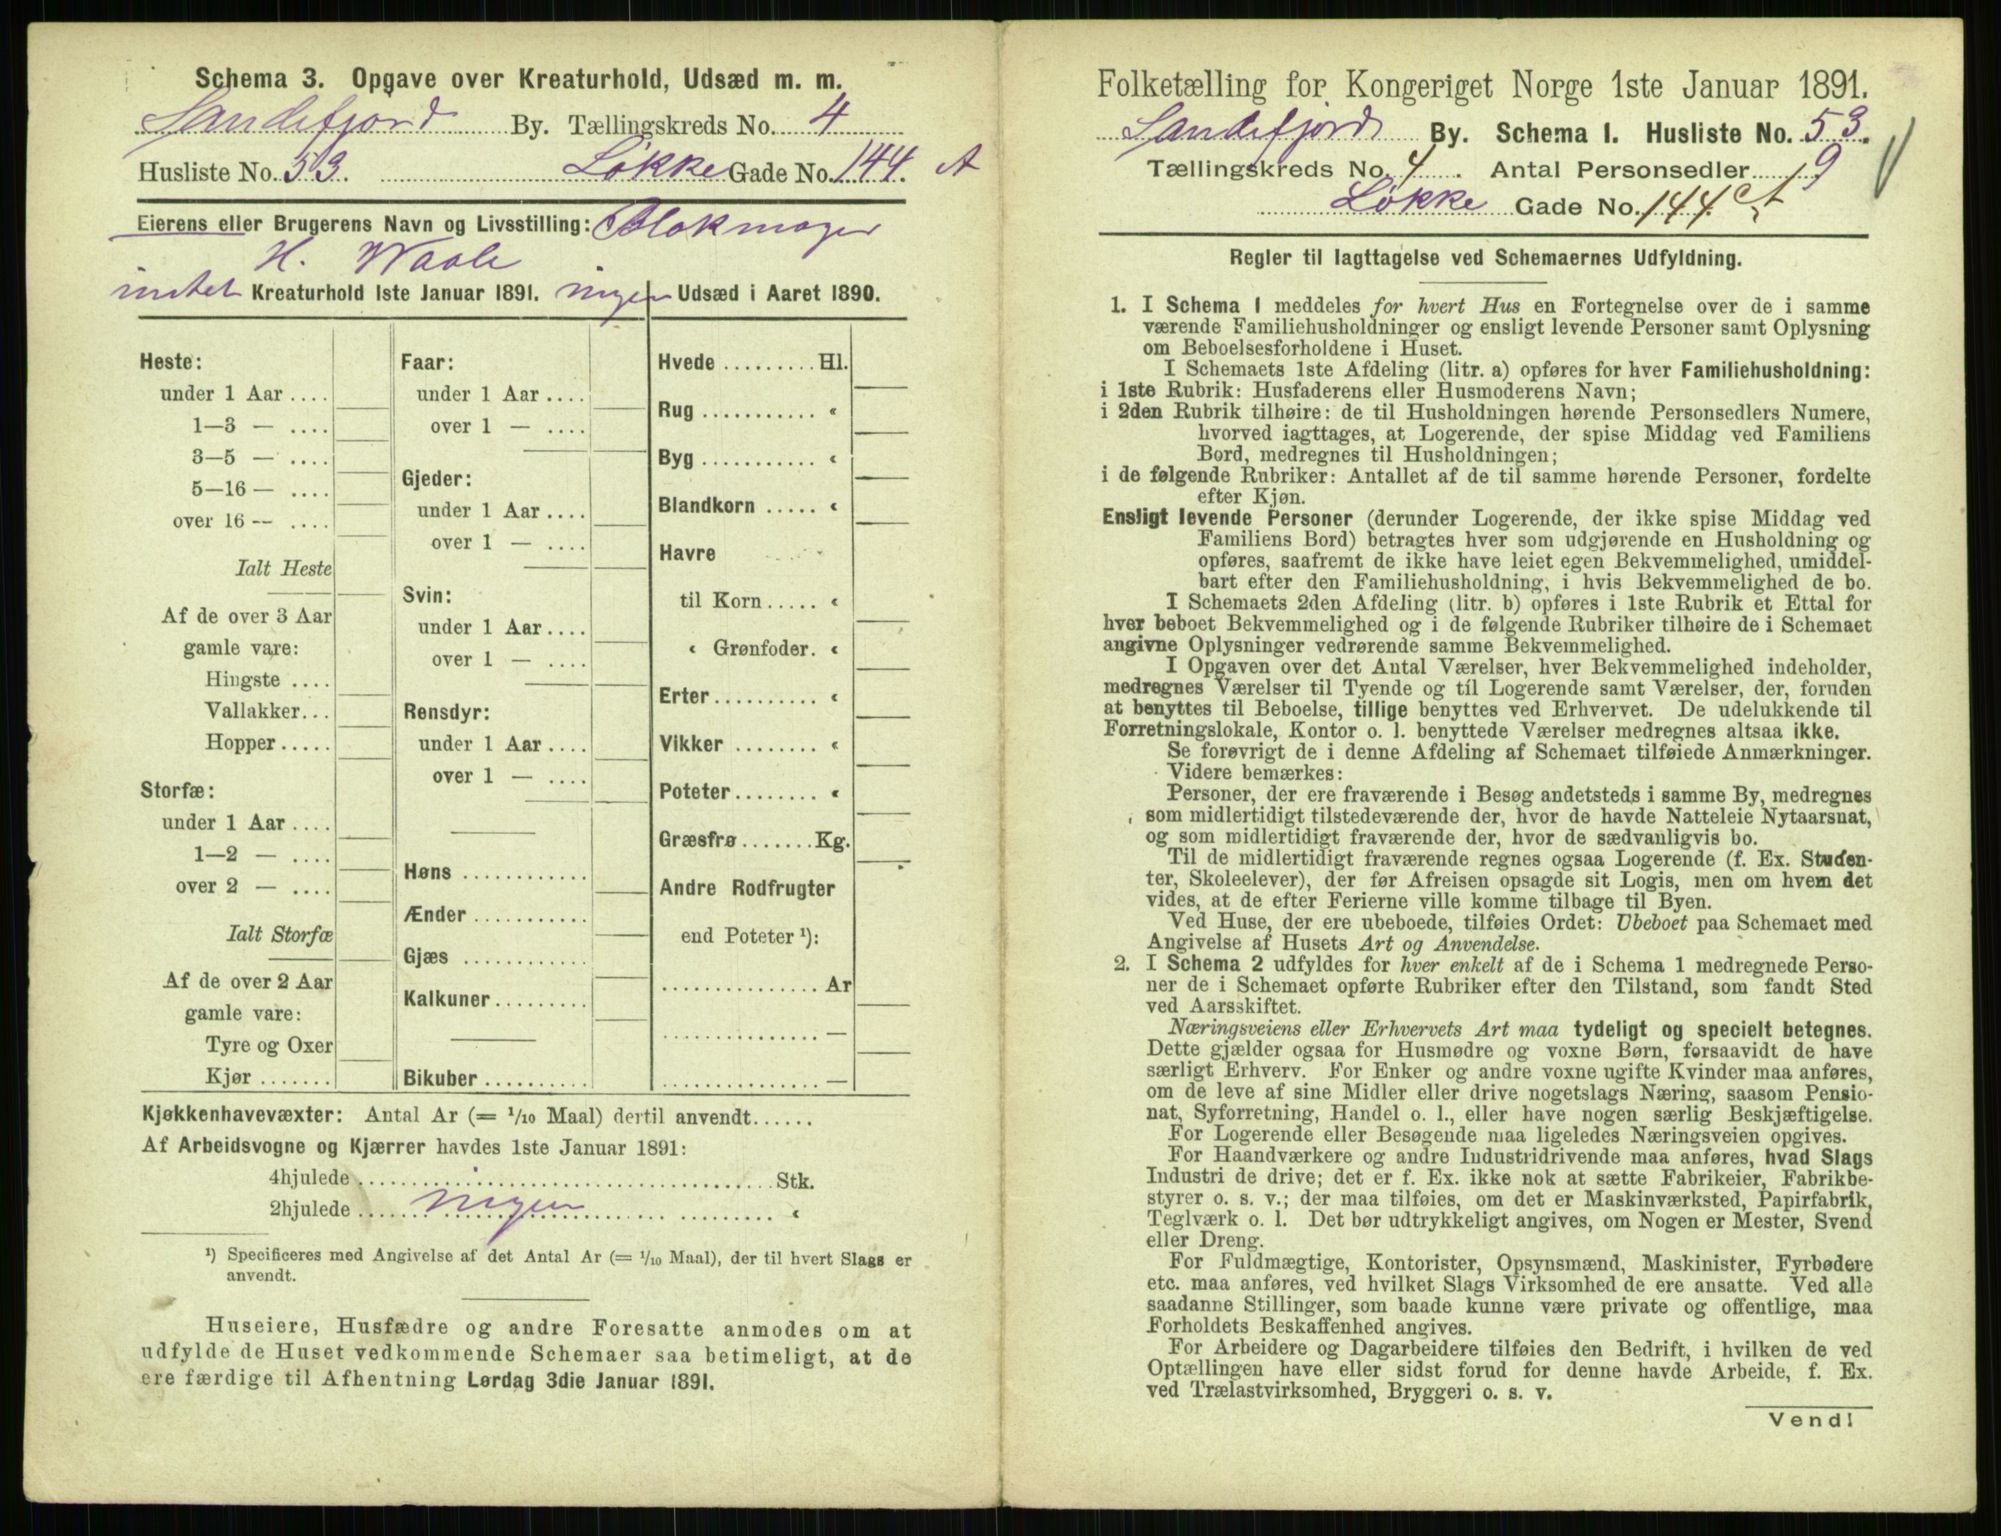 Schema 3. Opgave over Kreaturhold, Udsæd m. m.
Sandefjord By. Tællingskreds No. 4
Husliste No. 53. Løkke Gade No. 144. A
Eierens eller Brugerens Navn og Livsstilling: Blokmager
H. Waale
intet Kreaturhold 1ste Januar 1891. ingen Udsæd i Aaret 1890.
Heste:
under 1 Aar ....
1—3 — ....
3—5 — ....
5—16 — ....
over 16 — ....
Ialt Heste
Af de over 3 Aar
gamle vare:
Hingste ....
Vallakker...
Hopper.....
Storfæ:
under 1 Aar ....
1—2 — ....
over 2 — ....
Ialt Storfæ
Af de over 2 Aar
gamle vare:
Tyre og Oxer
Kjør .......
Faar:
under 1 Aar ....
over 1 — ....
Gjeder:
under 1 Aar ....
over 1 — ....
Svin:
under 1 Aar ....
over 1 — ....
Rensdyr:
under 1 Aar ....
over 1 — ....
Høns ............
Ænder ...........
Gjæs ............
Kalkuner.........
Bikuber ..........
Hvede ......... Hl.
Rug ........... «
Byg ........... «
Blandkorn ..... «
Havre
til Korn ..... «
« Grønfoder. «
Erter.......... «
Vikker ........ «
Poteter........ «
Græsfrø ....... Kg.
Andre Rodfrugter
end Poteter ¹):
............... Ar
............... —
............... —
Kjøkkenhavevæxter: Antal Ar (= 1/10 Maal) dertil anvendt......
Af Arbeidsvogne og Kjærrer havdes 1ste Januar 1891:
4hjulede ........................ Stk.
2hjulede ..... ingen ............ «
¹) Specificeres med Angivelse af det Antal Ar (= 1/10 Maal), der til hvert Slags er
anvendt.
Huseiere, Husfædre og andre Foresatte anmodes om at
udfylde de Huset vedkommende Schemaer saa betimeligt, at de
ere færdige til Afhentning Lørdag 3die Januar 1891.
Folketælling for Kongeriget Norge 1ste Januar 1891.
Sandefjord By. Schema 1. Husliste No. 53.
Tællingskreds No. 4. Antal Personsedler 19
Løkke Gade No. 144 A
Regler til Iagttagelse ved Schemaernes Udfyldning.
1. I Schema 1 meddeles for hvert Hus en Fortegnelse over de i samme
værende Familiehusholdninger og ensligt levende Personer samt Oplysning
om Beboelsesforholdene i Huset.
I Schemaets 1ste Afdeling (litr. a) opføres for hver Familiehusholdning:
i 1ste Rubrik: Husfaderens eller Husmoderens Navn;
i 2den Rubrik tilhøire: de til Husholdningen hørende Personsedlers Numere,
hvorved iagttages, at Logerende, der spise Middag ved Familiens
Bord, medregnes til Husholdningen;
i de følgende Rubriker: Antallet af de til samme hørende Personer, fordelte
efter Kjøn.
Ensligt levende Personer (derunder Logerende, der ikke spise Middag ved
Familiens Bord) betragtes hver som udgjørende en Husholdning og
opføres, saafremt de ikke have leiet egen Bekvemmelighed, umiddel-
bart efter den Familiehusholdning, i hvis Bekvemmelighed de bo.
I Schemaets 2den Afdeling (litr. b) opføres i 1ste Rubrik et Ettal for
hver beboet Bekvemmelighed og i de følgende Rubriker tilhøire de i Schemaet
angivne Oplysninger vedrørende samme Bekvemmelighed.
I Opgaven over det Antal Værelser, hver Bekvemmelighed indeholder,
medregnes Værelser til Tyende og til Logerende samt Værelser, der, foruden
at benyttes til Beboelse, tillige benyttes ved Erhvervet. De udelukkende til
Forretningslokale, Kontor o. l. benyttede Værelser medregnes altsaa ikke.
Se forøvrigt de i denne Afdeling af Schemaet tilføiede Anmærkninger.
Videre bemærkes:
Personer, der ere fraværende i Besøg andetsteds i samme By, medregnes
som midlertidigt tilstedeværende der, hvor de havde Natteleie Nytaarsnat,
og som midlertidigt fraværende der, hvor de sædvanligvis bo.
Til de midlertidigt fraværende regnes ogsaa Logerende (f. Ex. Studen-
ter, Skoleelever), der før Afreisen opsagde sit Logis, men om hvem det
vides, at de efter Ferierne ville komme tilbage til Byen.
Ved Huse, der ere ubeboede, tilføies Ordet: Ubeboet paa Schemaet med
Angivelse af Husets Art og Anvendelse.
2. I Schema 2 udfyldes for hver enkelt af de i Schema 1 medregnede Perso-
ner de i Schemaet opførte Rubriker efter den Tilstand, som fandt Sted
ved Aarsskiftet.
Næringsveiens eller Erhvervets Art maa tydeligt og specielt betegnes.
Dette gjælder ogsaa for Husmødre og voxne Børn, forsaavidt de have
særligt Erhverv. For Enker og andre voxne ugifte Kvinder maa anføres,
om de leve af sine Midler eller drive nogetslags Næring, saasom Pensio-
nat, Syforretning, Handel o. l., eller have nogen særlig Beskjæftigelse.
For Logerende eller Besøgende maa ligeledes Næringsveien opgives.
For Haandværkere og andre Industridrivende maa anføres, hvad Slags
Industri de drive; det er f. Ex. ikke nok at sætte Fabrikeier, Fabrikbe-
styrer o. s. v.; der maa tilføies, om det er Maskinværksted, Papirfabrik,
Teglværk o. l. Det bør udtrykkeligt angives, om Nogen er Mester, Svend
eller Dreng.
For Fuldmægtige, Kontorister, Opsynsmænd, Maskinister, Fyrbødere
etc. maa anføres, ved hvilket Slags Virksomhed de ere ansatte. Ved alle
saadanne Stillinger, som baade kunne være private og offentlige, maa
Forholdets Beskaffenhed angives.
For Arbeidere og Dagarbeidere tilføies den Bedrift, i hvilken de ved
Optællingen have eller sidst forud for denne havde Arbeide, f. Ex.
ved Trælastvirksomhed, Bryggeri o. s. v.
Vend!